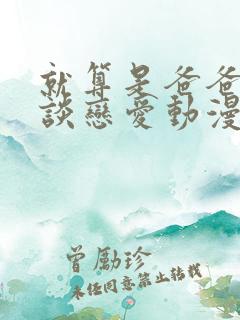 就算是爸爸
談戀愛動漫
曾勵珍
未经同意禁止转载